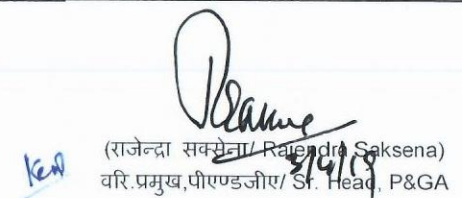 (राजेन्द्रा सक्सेना/ Rajendra Saksena)
3/4/19
वरि.प्रमुख,पीएण्डजीए/ Sr. Head, P&GA